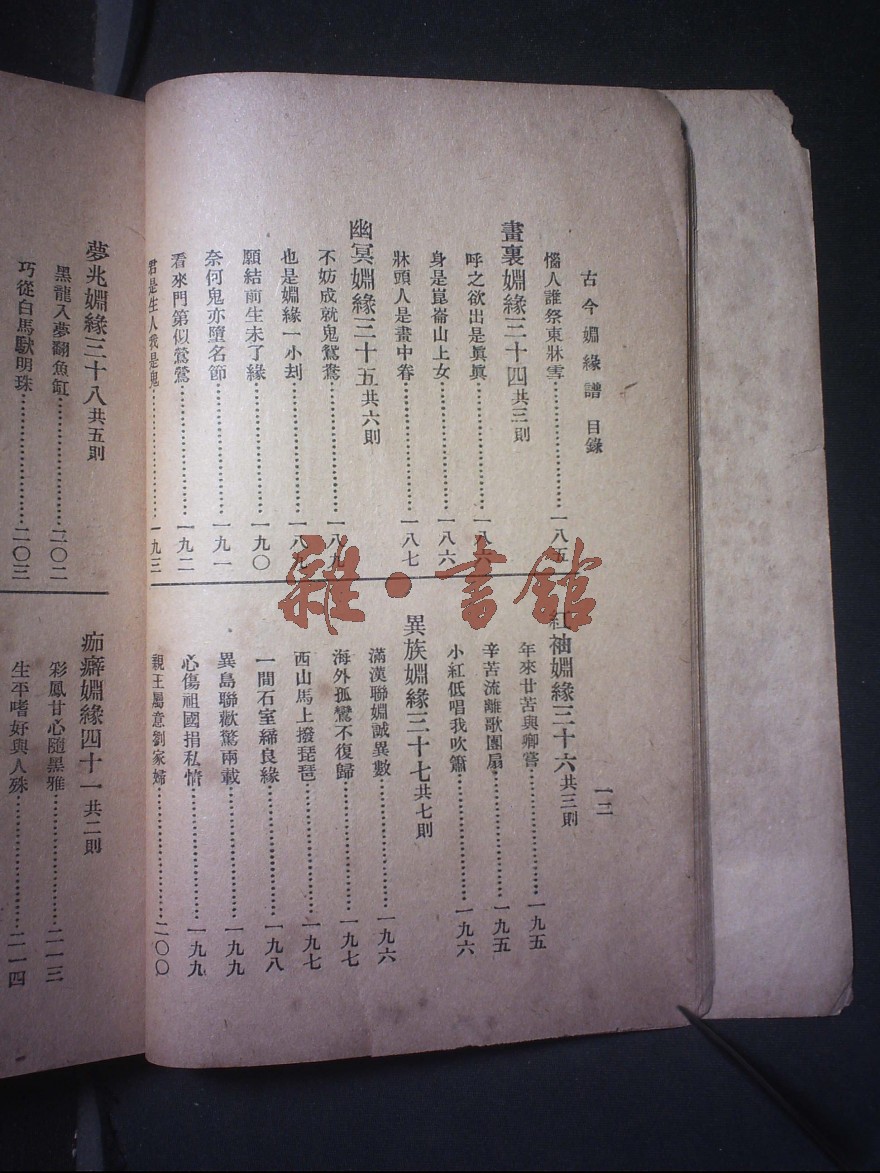 古今婣緣譜 目錄
一二
惱人誰祭東牀雪…………一八五
畫裏婣緣三十四共三則
呼之欲出是眞眞…………一八六
身是崑崙山上女…………一八六
牀頭人是畫中眷…………一八七
幽冥婣緣三十五共六則
不妨成就鬼鴛鴦…………一八九
也是婣緣一小刦…………一八九
願結前生未了緣…………一九〇
奈何鬼亦墮名節…………一九一
看來門第似鶯鶯…………一九二
君是生人我是鬼…………一九三
紅袖婣緣三十六共三則
年來甘苦與卿嘗…………一九五
辛苦流離歌團扇…………一九五
小紅低唱我吹簫…………一九六
異族婣緣三十七共七則
滿漢聯婣誠異數…………一九六
海外孤鸞不復歸…………一九七
西山馬上撥琵琶…………一九七
一間石室締良緣…………一九八
異島聯歡驚兩載…………一九九
心傷祖國捐私情…………一九九
親王屬意劉家婦…………二〇〇
夢兆婣緣三十八共五則
黑龍入夢翻魚缸…………二〇二
巧從白馬獻明珠…………二〇三
痂癖婣緣四十一共二則
彩鳳甘心隨黑雅…………二一三
生平嗜好與人殊…………二一四
雜·書館